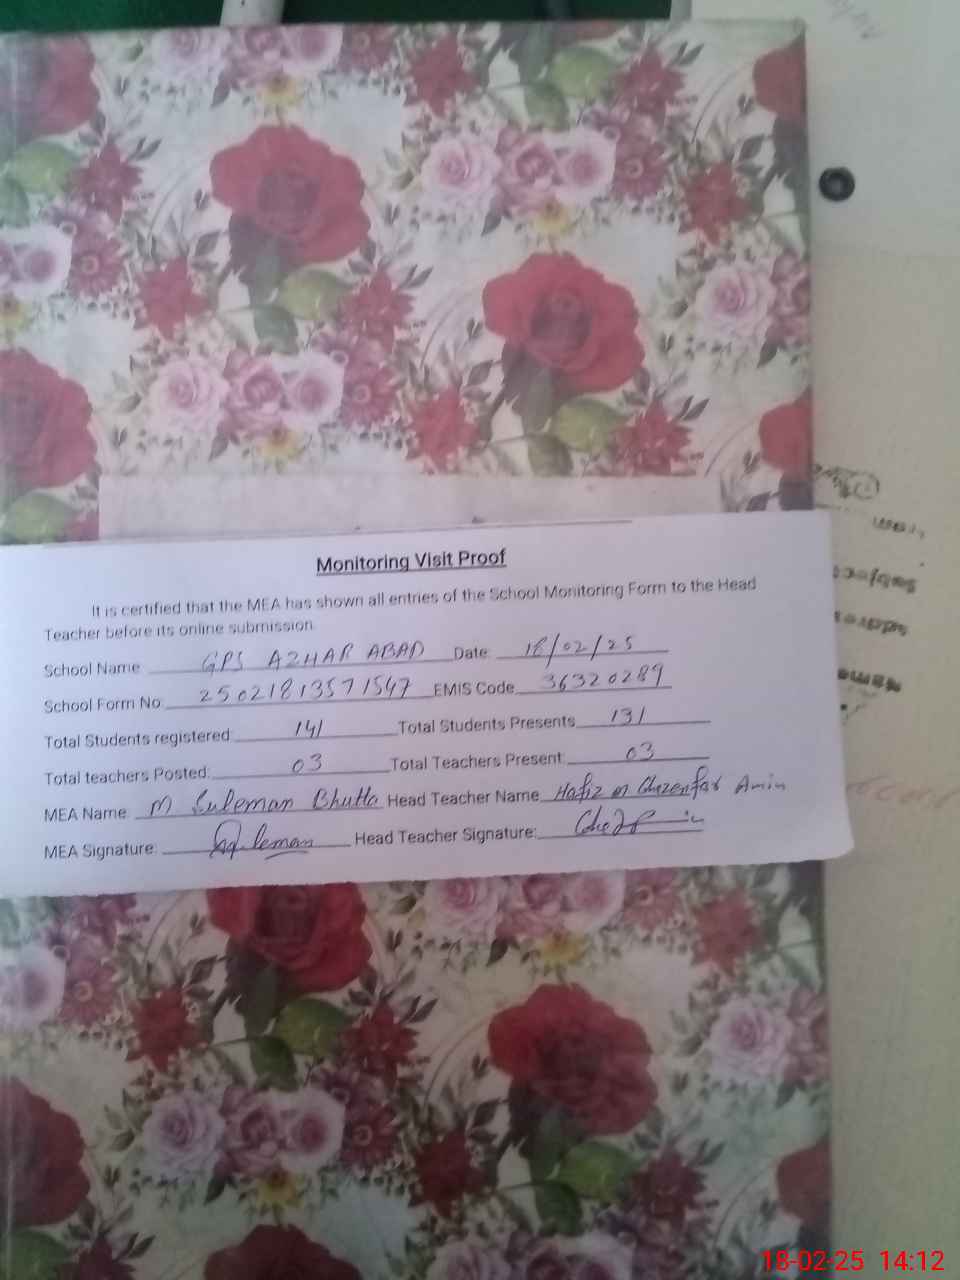 Monitoring Visit Proof
It is certified that the MEA has shown all entries of the School Monitoring Form to the Head
Teacher before its online submission.
School Name: GPS AZHAR ABAD Date: 18/02/25
School Form No: 25021813571547 EMIS Code 36320289
Total Students registered: 141 Total Students Presents 131
Total teachers Posted: 03 Total Teachers Present: 03
MEA Name: M Suleman Bhutta Head Teacher Name Hafiz M Ghazenfar Amin
MEA Signature: Suleman Head Teacher Signature:
18-02-25 14:12